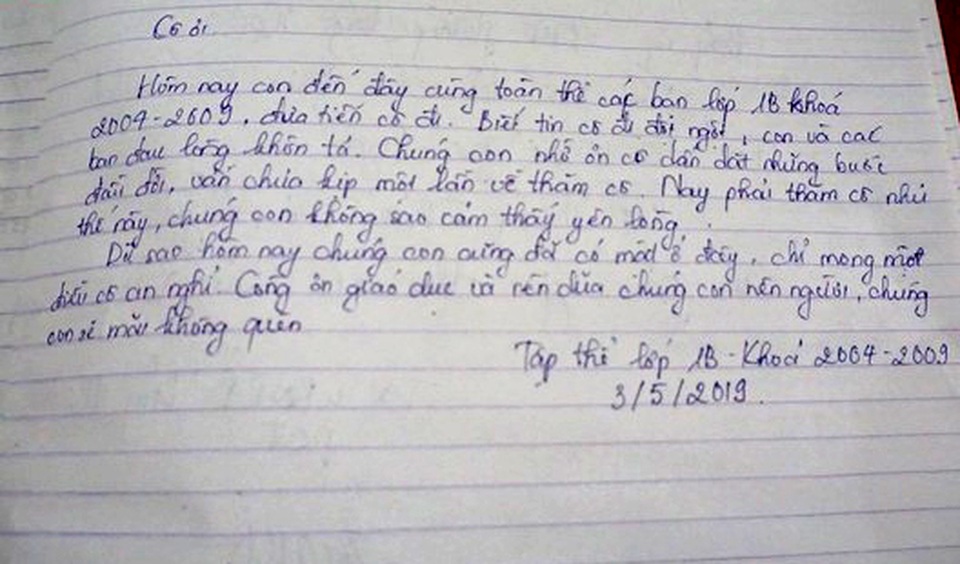 Cô ơi.
Hôm nay con đến đây cùng toàn thể các bạn lớp 1B khoá
2004-2009, đưa tiễn cô đi. Biết tin cô đi đột ngột, con và các
bạn đau lòng khôn tả. Chúng con nhớ ơn cô dẫn dắt những bước
đầu đời, vẫn chưa kịp một lần về thăm cô. Nay phải thăm cô như
thế này, chúng con không sao cảm thấy yên lòng.
Dù sao hôm nay chúng con cũng đã có mặt ở đây, chỉ mong một
điều cô an nghỉ. Công ơn giáo dục và nên dìu chúng con nên người, chúng
con sẽ mãi không quên
Tập thể lớp 1B - Khoá 2004-2009
3/5/2019.